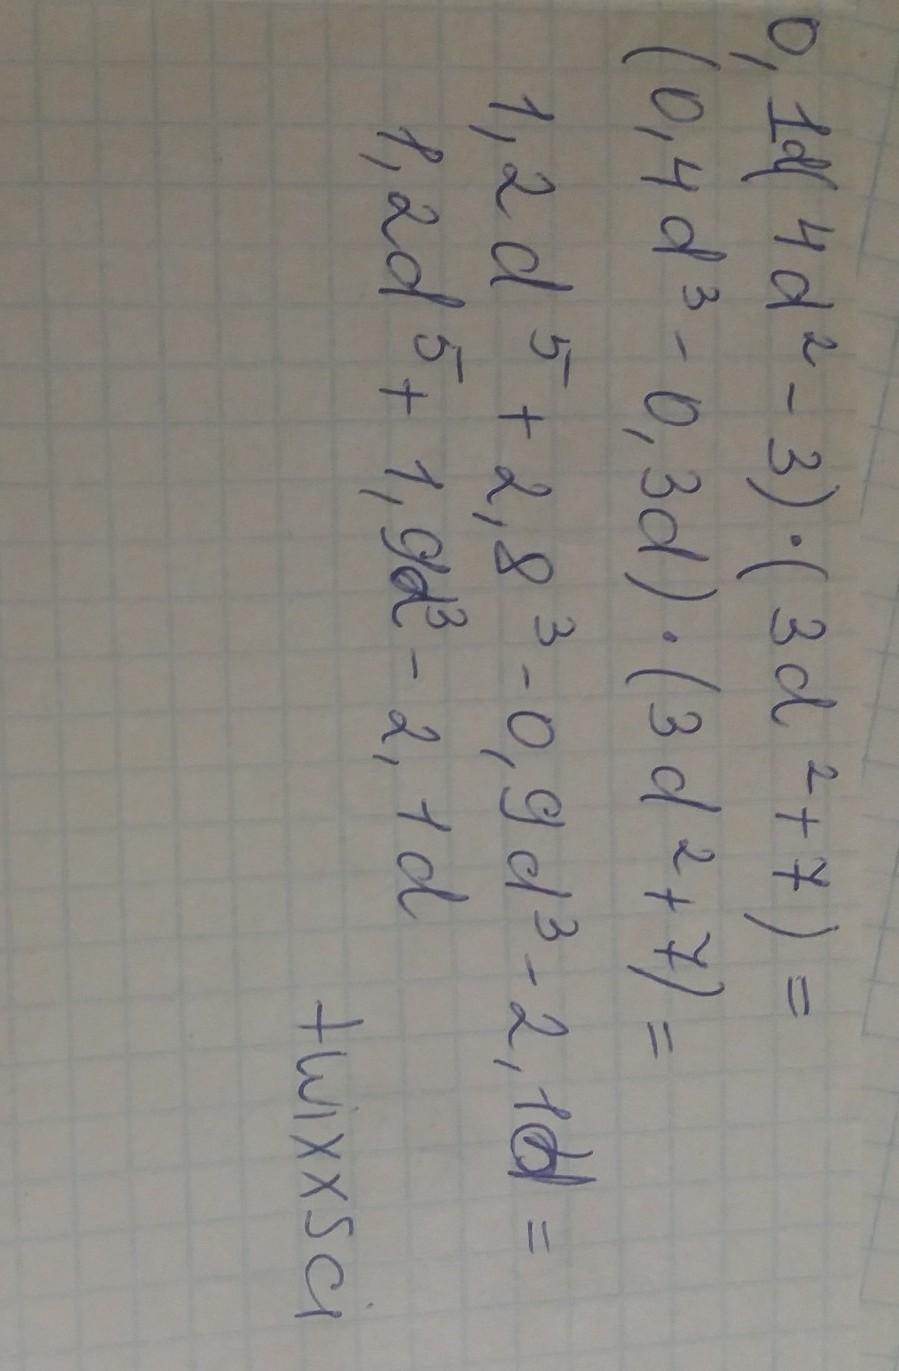 0,1d(4d²-3)·(3d²+7)=
(0,4d³-0,3d)·(3d²+7)=
1,2d⁵+2,8³-0,9d³-2,1d=
1,2d⁵+1,9d³-2,1d
twixxsci